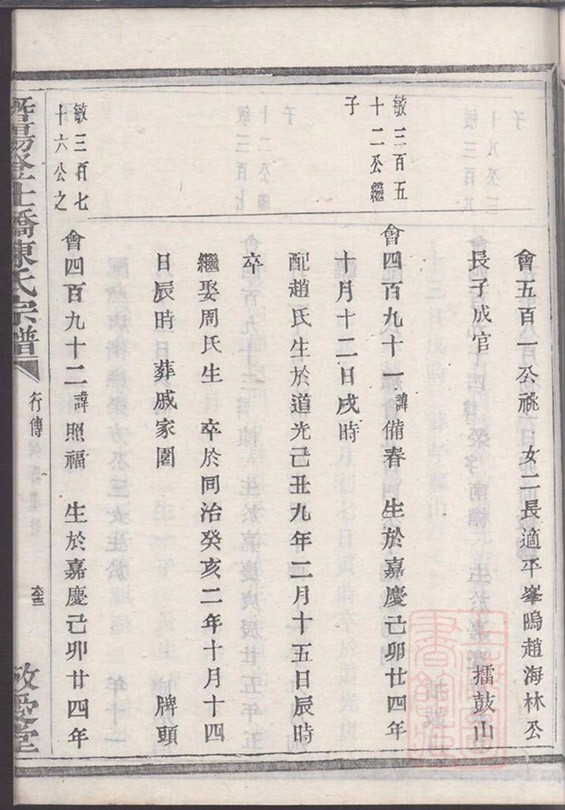 會五百一公祧　女二長適平峯塢趙海林公
長子成官　擂鼓山
敏三百五
十二公繼
子
會四百九十一諱備春　生於嘉慶己卯廿四年
十月十二日戌時
配趙氏生於道光己丑九年二月十五日辰時
卒
繼娶周氏生　卒於同治癸亥二年十月十四
日辰時　葬戚家園　牌頭
敏三百七
十六公之
會四百九十二諱照福　生於嘉慶己卯廿四年
暨陽登仕橋陳氏宗譜
行傳
敬愛堂